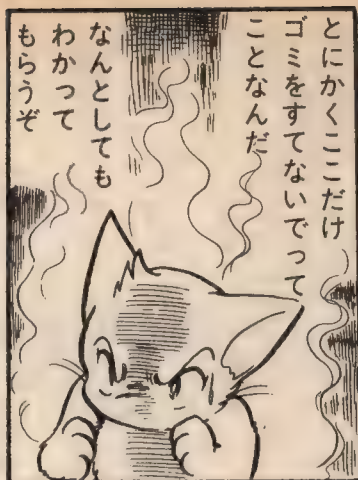 とにかくここだけ
ゴミをすてないでって
ことなんだ
なんとしても
わかって
もらうぞ